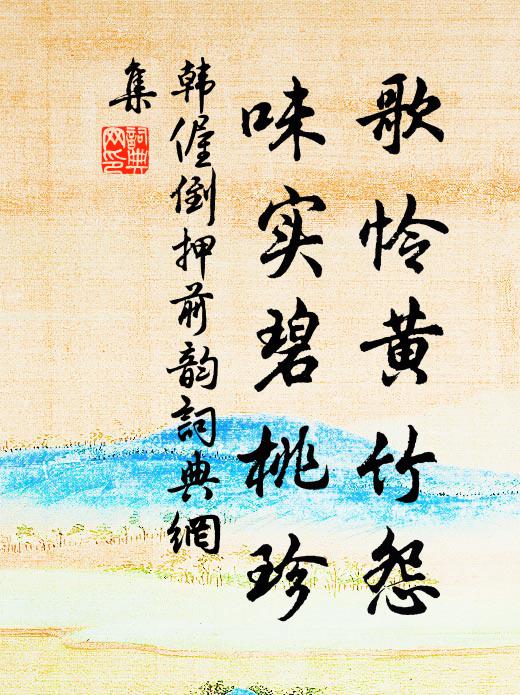 歌怜黄竹怨
味实碧桃珍
韩偓倒押前韵詞典網
集
詞典网印